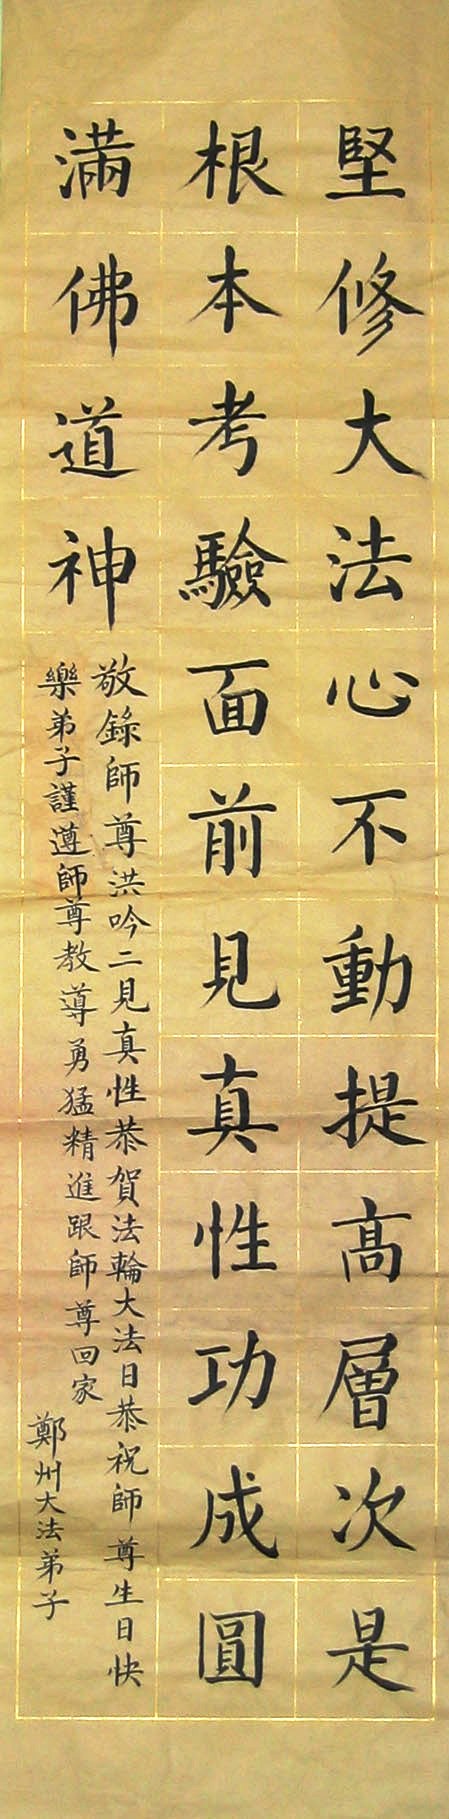 堅修大法心不動提高層次是
根本考驗面前見真性功成圓
滿佛道神
敬錄師尊洪吟二見真性恭賀法輪大法日恭祝師尊生日快
樂弟子謹遵師尊教導勇猛精進跟師尊回家
鄭州大法弟子